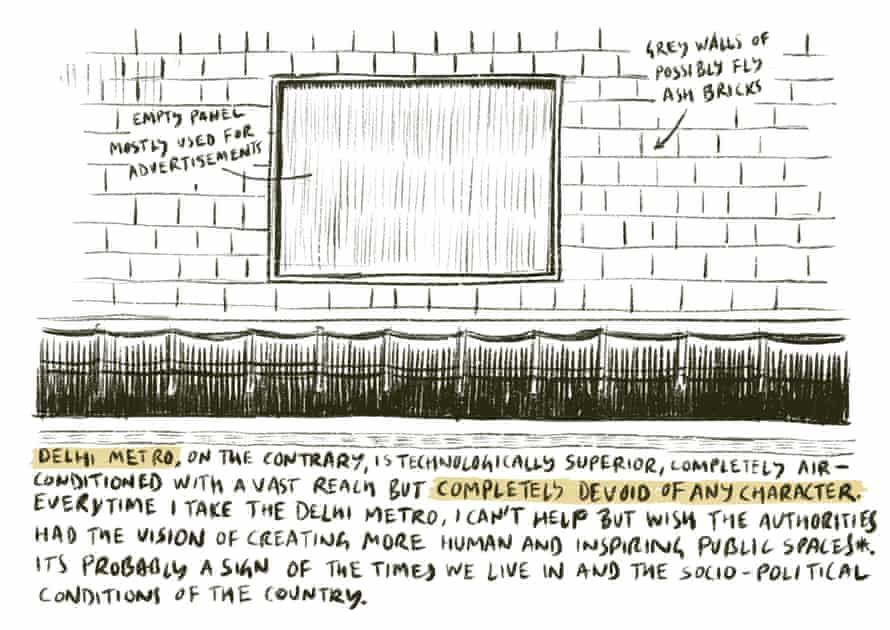 GREY WALLS OF
POSSIBLY FLY
ASH BRICKS
EMPTY PANEL
MOSTLY USED FOR
ADVERTISEMENTS
DELHI METRO, ON THE CONTRARY, IS TECHNOLOGICALLY SUPERIOR, COMPLETELY AIR-
CONDITIONED WITH A VAST REACH BUT COMPLETELY DEVOID OF ANY CHARACTER.
EVERYTIME I TAKE THE DELHI METRO, I CAN'T HELP BUT WISH THE AUTHORITIES
HAD THE VISION OF CREATING MORE HUMAN AND INSPIRING PUBLIC SPACES*.
ITS PROBABLY A SIGN OF THE TIMES WE LIVE IN AND THE SOCIO-POLITICAL
CONDITIONS OF THE COUNTRY.